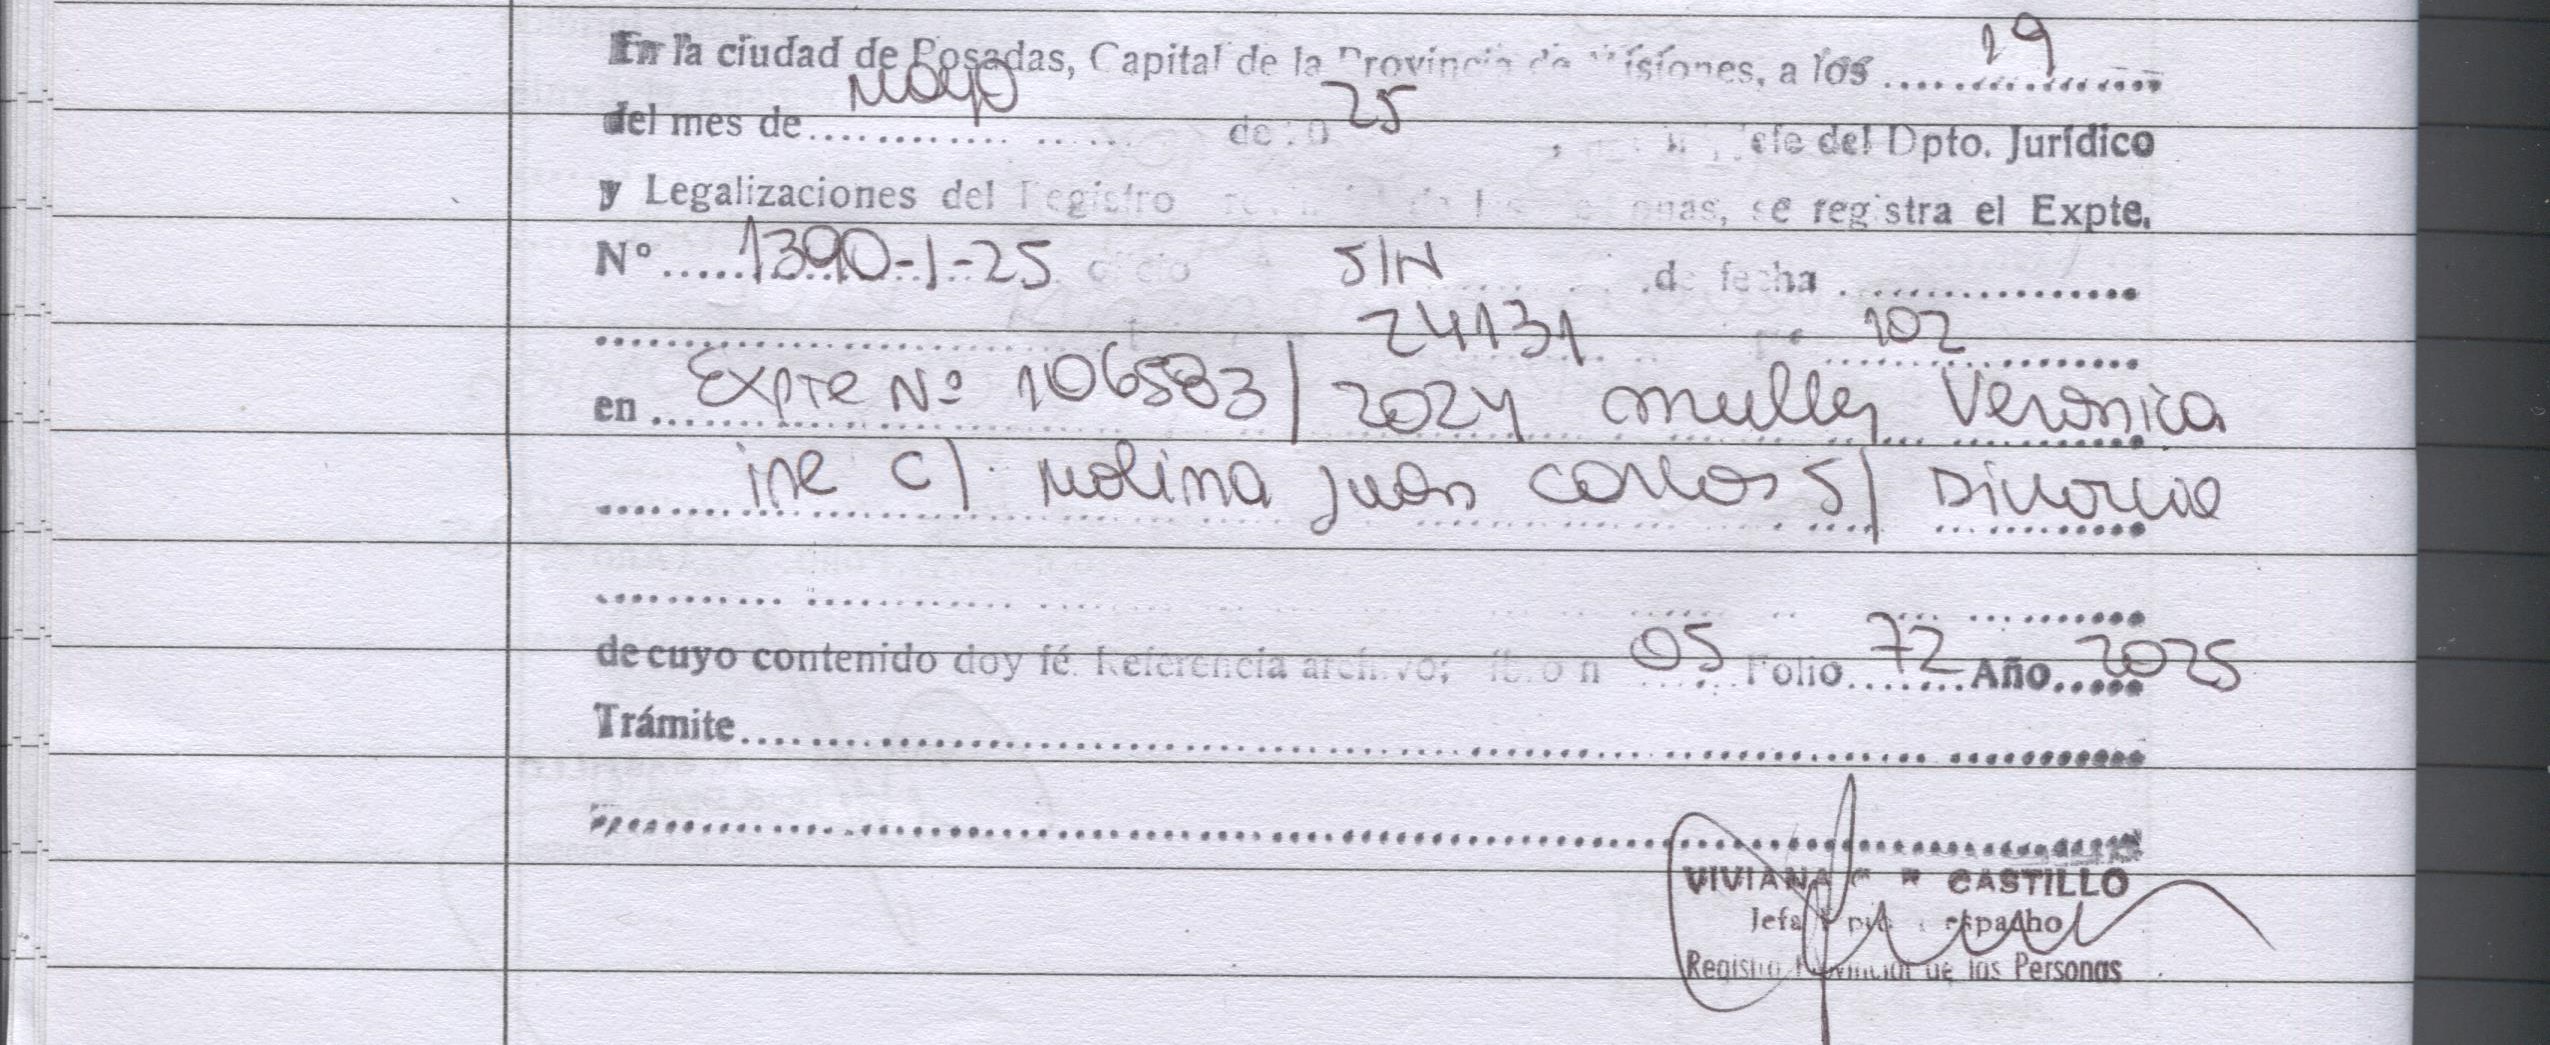 En la ciudad de Posadas, Capital de la Provincia de Misiones, a los 19
del mes de mayo de 20 25, Jefe del Dpto. Jurídico
y Legalizaciones del Registro de las personas, se registra el Expte.
Nº 1390-1-25 oficio S/N de fecha
24131 102
en Expte Nº 106583/2024 Muller Veronica
ine c/ Molina Juan Carlos S/ Divorcio
de cuyo contenido doy fé. Referencia archivo; libro n 05 Folio 72 Año 2025
Trámite
VIVIANA CASTILLO
Jefa Dpto. Despacho
Registro Provincial de las Personas